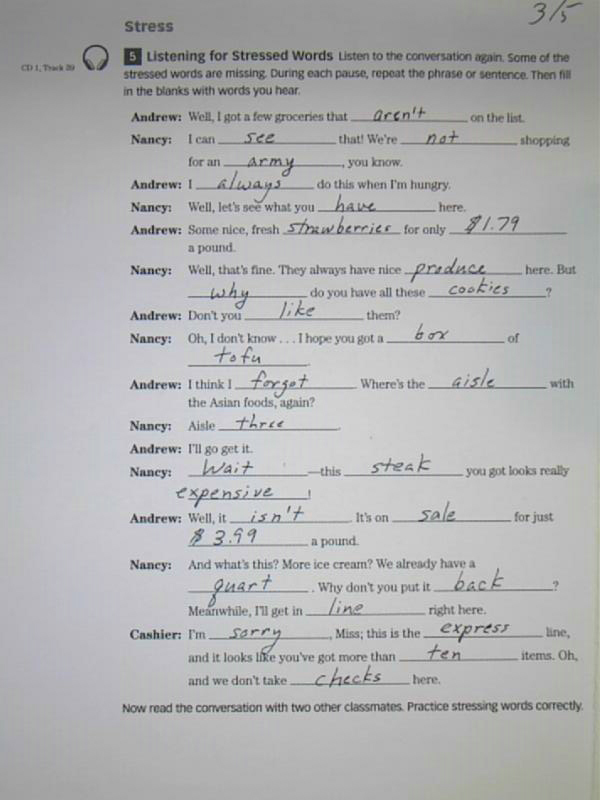 3/5
Stress
CD 1, Track 39
5 Listening for Stressed Words Listen to the conversation again. Some of the
stressed words are missing. During each pause, repeat the phrase or sentence. Then fill
in the blanks with words you hear.
Andrew: Well, I got a few groceries that aren't on the list.
Nancy: I can see that! We're not shopping
for an army, you know.
Andrew: I always do this when I'm hungry.
Nancy: Well, let's see what you have here.
Andrew: Some nice, fresh strawberries for only $1.79
a pound.
Nancy: Well, that's fine. They always have nice produce here. But
why do you have all these cookies?
Andrew: Don't you like them?
Nancy: Oh, I don't know . . . I hope you got a box of
tofu.
Andrew: I think I forgot. Where's the aisle with
the Asian foods, again?
Nancy: Aisle three.
Andrew: I'll go get it.
Nancy: Wait—this steak you got looks really
expensive!
Andrew: Well, it isn't. It's on sale for just
$3.99 a pound.
Nancy: And what's this? More ice cream? We already have a
quart. Why don't you put it back?
Meanwhile, I'll get in line right here.
Cashier: I'm sorry, Miss; this is the express line,
and it looks like you've got more than ten items. Oh,
and we don't take checks here.
Now read the conversation with two other classmates. Practice stressing words correctly.